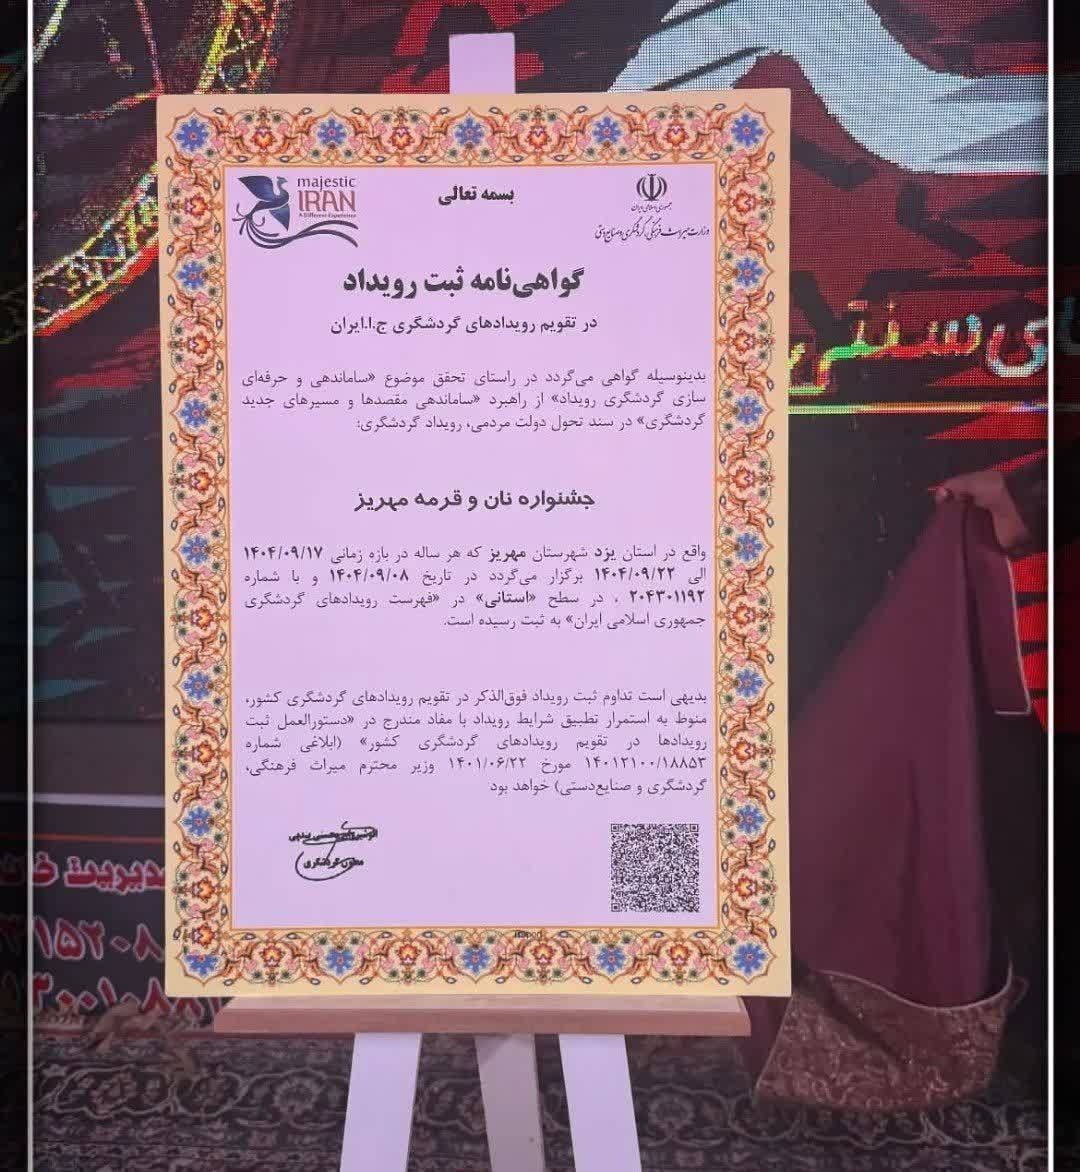 majestic
IRAN
A Different Experience
بسمه تعالی
جمهوری اسلامی ایران
وزارت میراث فرهنگی، گردشگری و صنایع دستی
گواهی‌نامه ثبت رویداد
در تقویم رویدادهای گردشگری ج.ا.ایران
بدینوسیله گواهی می‌گردد در راستای تحقق موضوع «ساماندهی و حرفه‌ای
سازی گردشگری رویداد» از راهبرد «ساماندهی مقصدها و مسیرهای جدید
گردشگری» در سند تحول دولت مردمی، رویداد گردشگری:
جشنواره نان و قرمه مهریز
واقع در استان یزد شهرستان مهریز که هر ساله در بازه زمانی ۱۴۰۴/۰۹/۱۷
الی ۱۴۰۴/۰۹/۲۲ برگزار می‌گردد در تاریخ ۱۴۰۴/۰۹/۰۸ و با شماره
۲۰۴۳۰۱۱۹۲ ، در سطح «استانی» در «فهرست رویدادهای گردشگری
جمهوری اسلامی ایران» به ثبت رسیده است.
بدیهی است تداوم ثبت رویداد فوق‌الذکر در تقویم رویدادهای گردشگری کشور،
منوط به استمرار تطبیق شرایط رویداد با مفاد مندرج در «دستورالعمل ثبت
رویدادها در تقویم رویدادهای گردشگری کشور» (ابلاغی شماره
۱۴۰۱۲۱۰۰/۱۸۸۵۳ مورخ ۱۴۰۱/۰۶/۲۲ وزیر محترم میراث فرهنگی،
گردشگری و صنایع‌دستی) خواهد بود
معاون گردشگری
ی سنتی
مدیریت